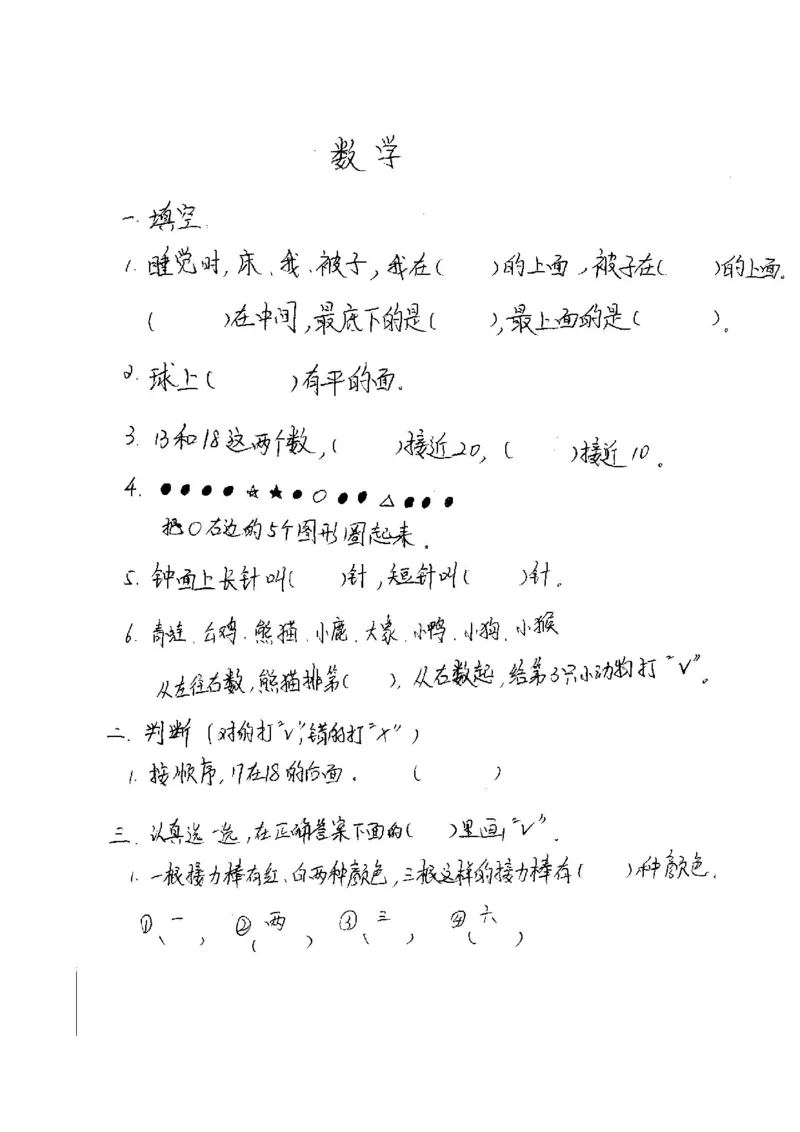 数学
一.填空.
1.睡觉时,床、我、被子,我在( )的上面,被子在( )的上面。
( )在中间,最底下的是( ),最上面的是( )。
2.球上( )有平的面.
3.13和18这两个数,( )接近20,( )接近10。
4.●●●●☆★●○●●△●●●
把○右边的5个图形圈起来.
5.钟面上长针叫( )针,短针叫( )针。
6.青蛙、公鸡、熊猫、小鹿、大象、小鸭、小狗、小猴
从左往右数,熊猫排第( ),从右数起,给第3只小动物打“√”。
二.判断(对的打“√”,错的打“×”)
1.按顺序,17在18的后面.( )
三.认真选一选,在正确答案下面的( )里画“√”.
1.一根接力棒有红、白两种颜色,三根这样的接力棒有( )种颜色.
①一 ②两 ③三 ④六
( ) ( ) ( ) ( )